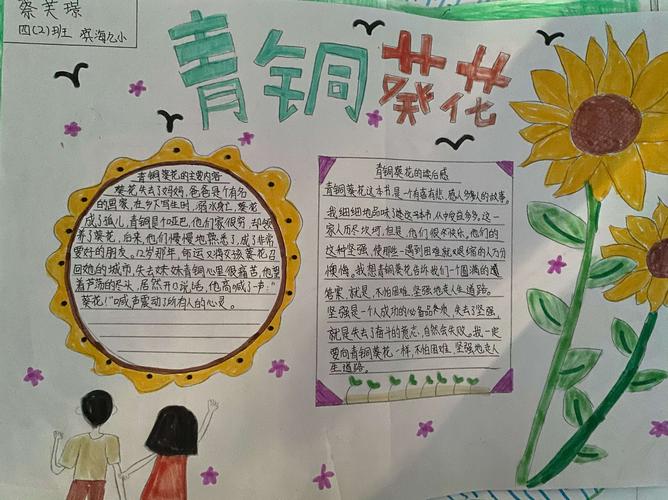 蔡芙璟
四(2)班 滨海九小
青铜葵花
青铜葵花的主要内容
葵花失去了妈妈,爸爸是个有名
的画家,在乡下写生时,溺水身亡,葵花
成了孤儿,青铜是个哑巴,他们家很穷,却收
养了葵花,后来,他们慢慢地熟悉了,成了非常
要好的朋友。12岁那年,命运又将女孩葵花召
回她的城市,失去妹妹青铜心里很痛苦,他望
着芦荡的尽头,居然开口说话,他高喊了一声:“
葵花!”喊声震动了所有人的心灵。
青铜葵花的读后感
青铜葵花这本书是一个有喜有悲,感人多泪人的故事。
我细细地品味了这本书,人中百众多。这一
家人历尽坎坷,但是,他们很不快乐,他们的
这种坚强,使那些一遇到困难就退缩的人万分
懊悔。我想青铜葵花告诉我们一个圆满的
答案,就是,不怕困难,坚强地走人生道路。
坚强是一个人成功的必备品参质,失去了坚强,
就是失去了奋斗的意志,自然会失败。我一定
要向青铜葵花一样,不怕困难,坚强地走人
生道路。